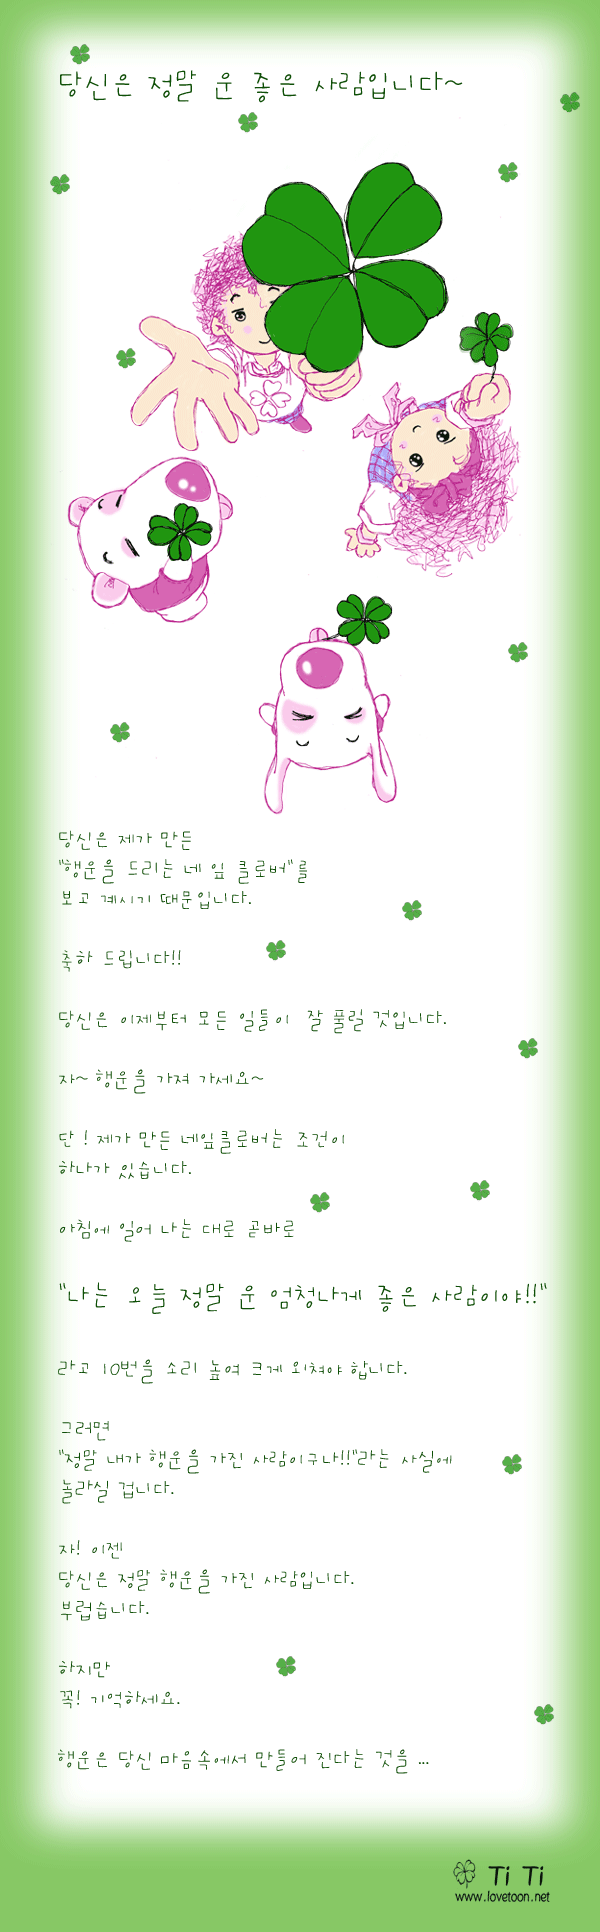 당신은 정말 운 좋은 사람입니다~
당신은 제가 만든
"행운을 드리는 네 잎 클로버"를
보고 계시기 때문입니다.
축하 드립니다!!
당신은 이제부터 모든 일들이 잘 풀릴 것입니다.
자~ 행운을 가져 가세요~
단! 제가 만든 네잎클로버는 조건이
하나가 있습니다.
아침에 일어 나는 대로 곧바로
"나는 오늘 정말 운 엄청나게 좋은 사람이야!!"
라고 10번을 소리 높여 크게 외쳐야 합니다.
그러면
"정말 내가 행운을 가진 사람이구나!!"라는 사실에
놀라실 겁니다.
자! 이젠
당신은 정말 행운을 가진 사람입니다.
부럽습니다.
하지만
꼭! 기억하세요.
행운은 당신 마음속에서 만들어 진다는 것을 ...
Ti Ti
www.lovetoon.net